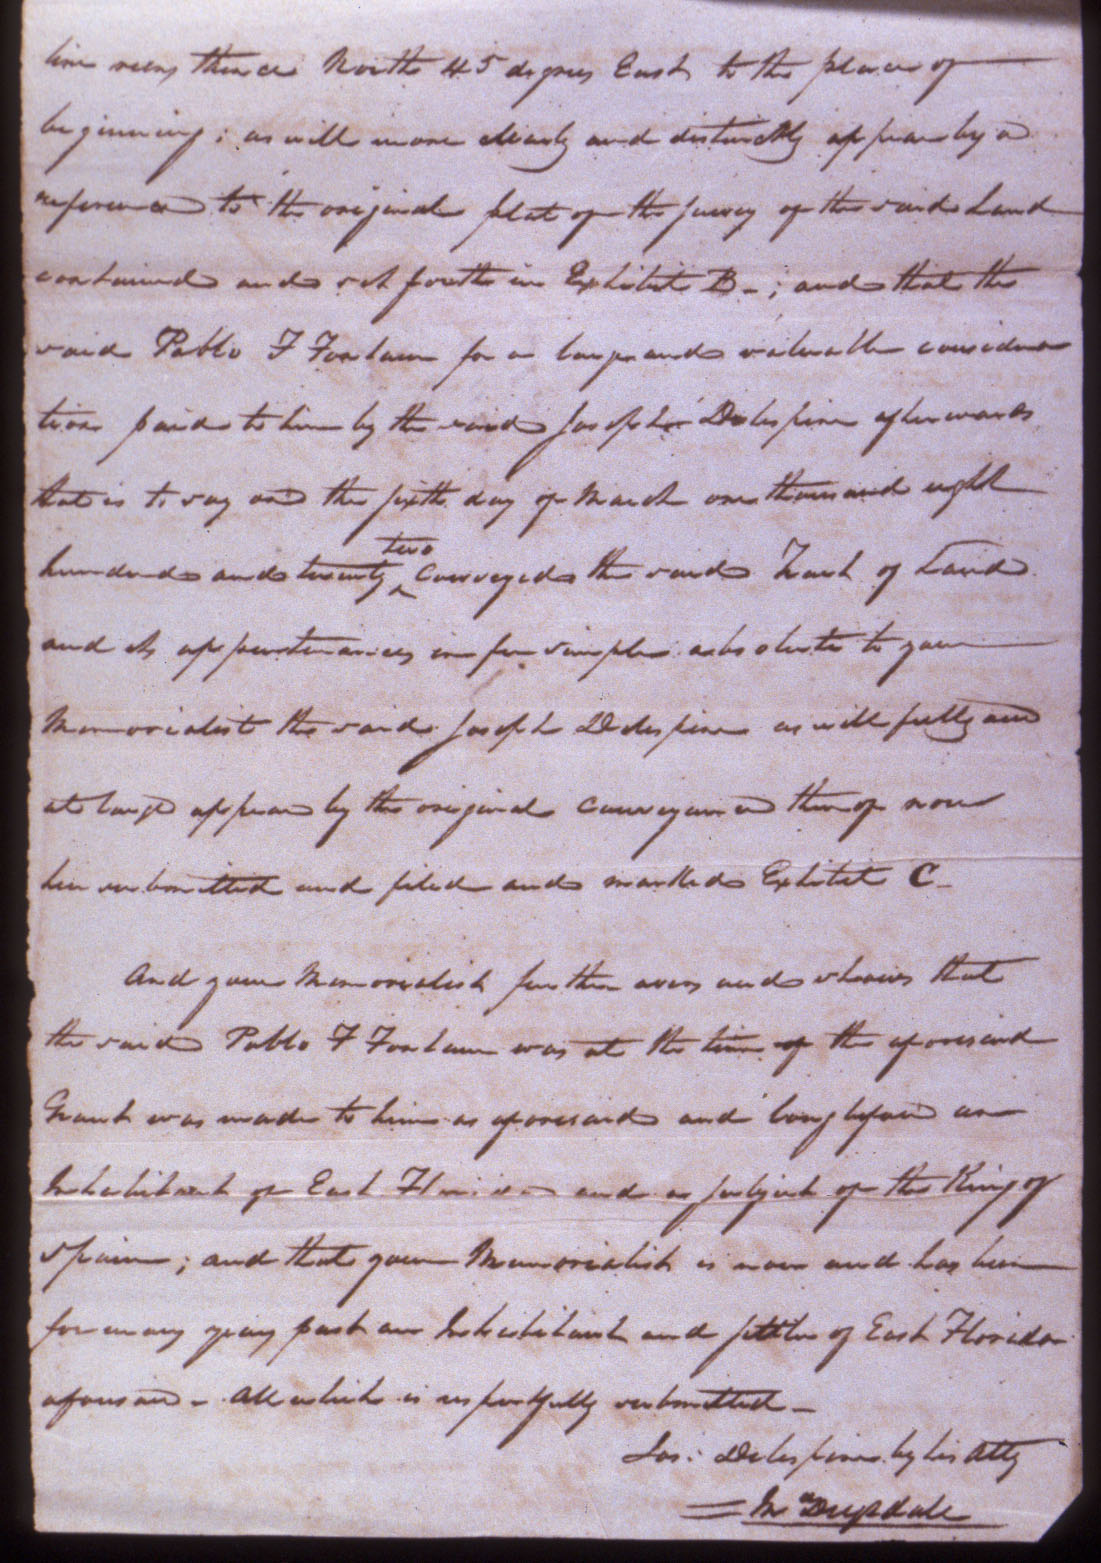 line runs thence North 45 degrees East to the place of
beginning; as will more clearly and distinctly appear by a
reference to the original plat of the survey of the said Land
contained and set forth in Exhibit B-; and that the
said Pablo F Fontane for a large and valuable considera
tion paid to him by the said Joseph Delespine afterwards
that is to say on the sixth day of March one thousand eight
hundred and twenty two conveyed the said Tract of Land
and its appurtenances in fee simple absolute to your
Memorialist the said Joseph Delespine as will fully and
at large appear by the original conveyance thereof now
here submitted and filed and marked Exhibit C-
And your Memorialist further avers and shews that
the said Pablo F Fontane was at the time of the aforesaid
Grant was made to him as aforesaid and long before an
Inhabitant of East Florida and a subject of the King of
Spain; and that your Memorialist is now and has been
for many years past an Inhabitant and settler of East Florida
aforesaid - All which is respectfully submitted -
Jos: Delespine by his Atty